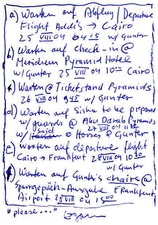 a) Warten auf Abflug / Departure
Flight Addis → Cairo
25 VIII 04 w/Gunter
b) Warten auf check-in @
Meridien Pyramid Hotel
w/Gunter 25 VIII 04 Cairo
c) Warten @ Ticketstand Pyramids
26 VIII 04 w/ Gunter
d) Warten auf Sisha to be prepared
w/guards @ Abu Pyramids
27 VIII 04
w/ Said @ Horses Gunter
e) Warten auf departure flight
Cairo → Frankfurt 28 VIII 04 10
w/ Gunter
f) Warten auf Gunter's chairs @
Sperrgepäck-Ausgabe Frankfurt
Airport 28 VIII 04
*please...